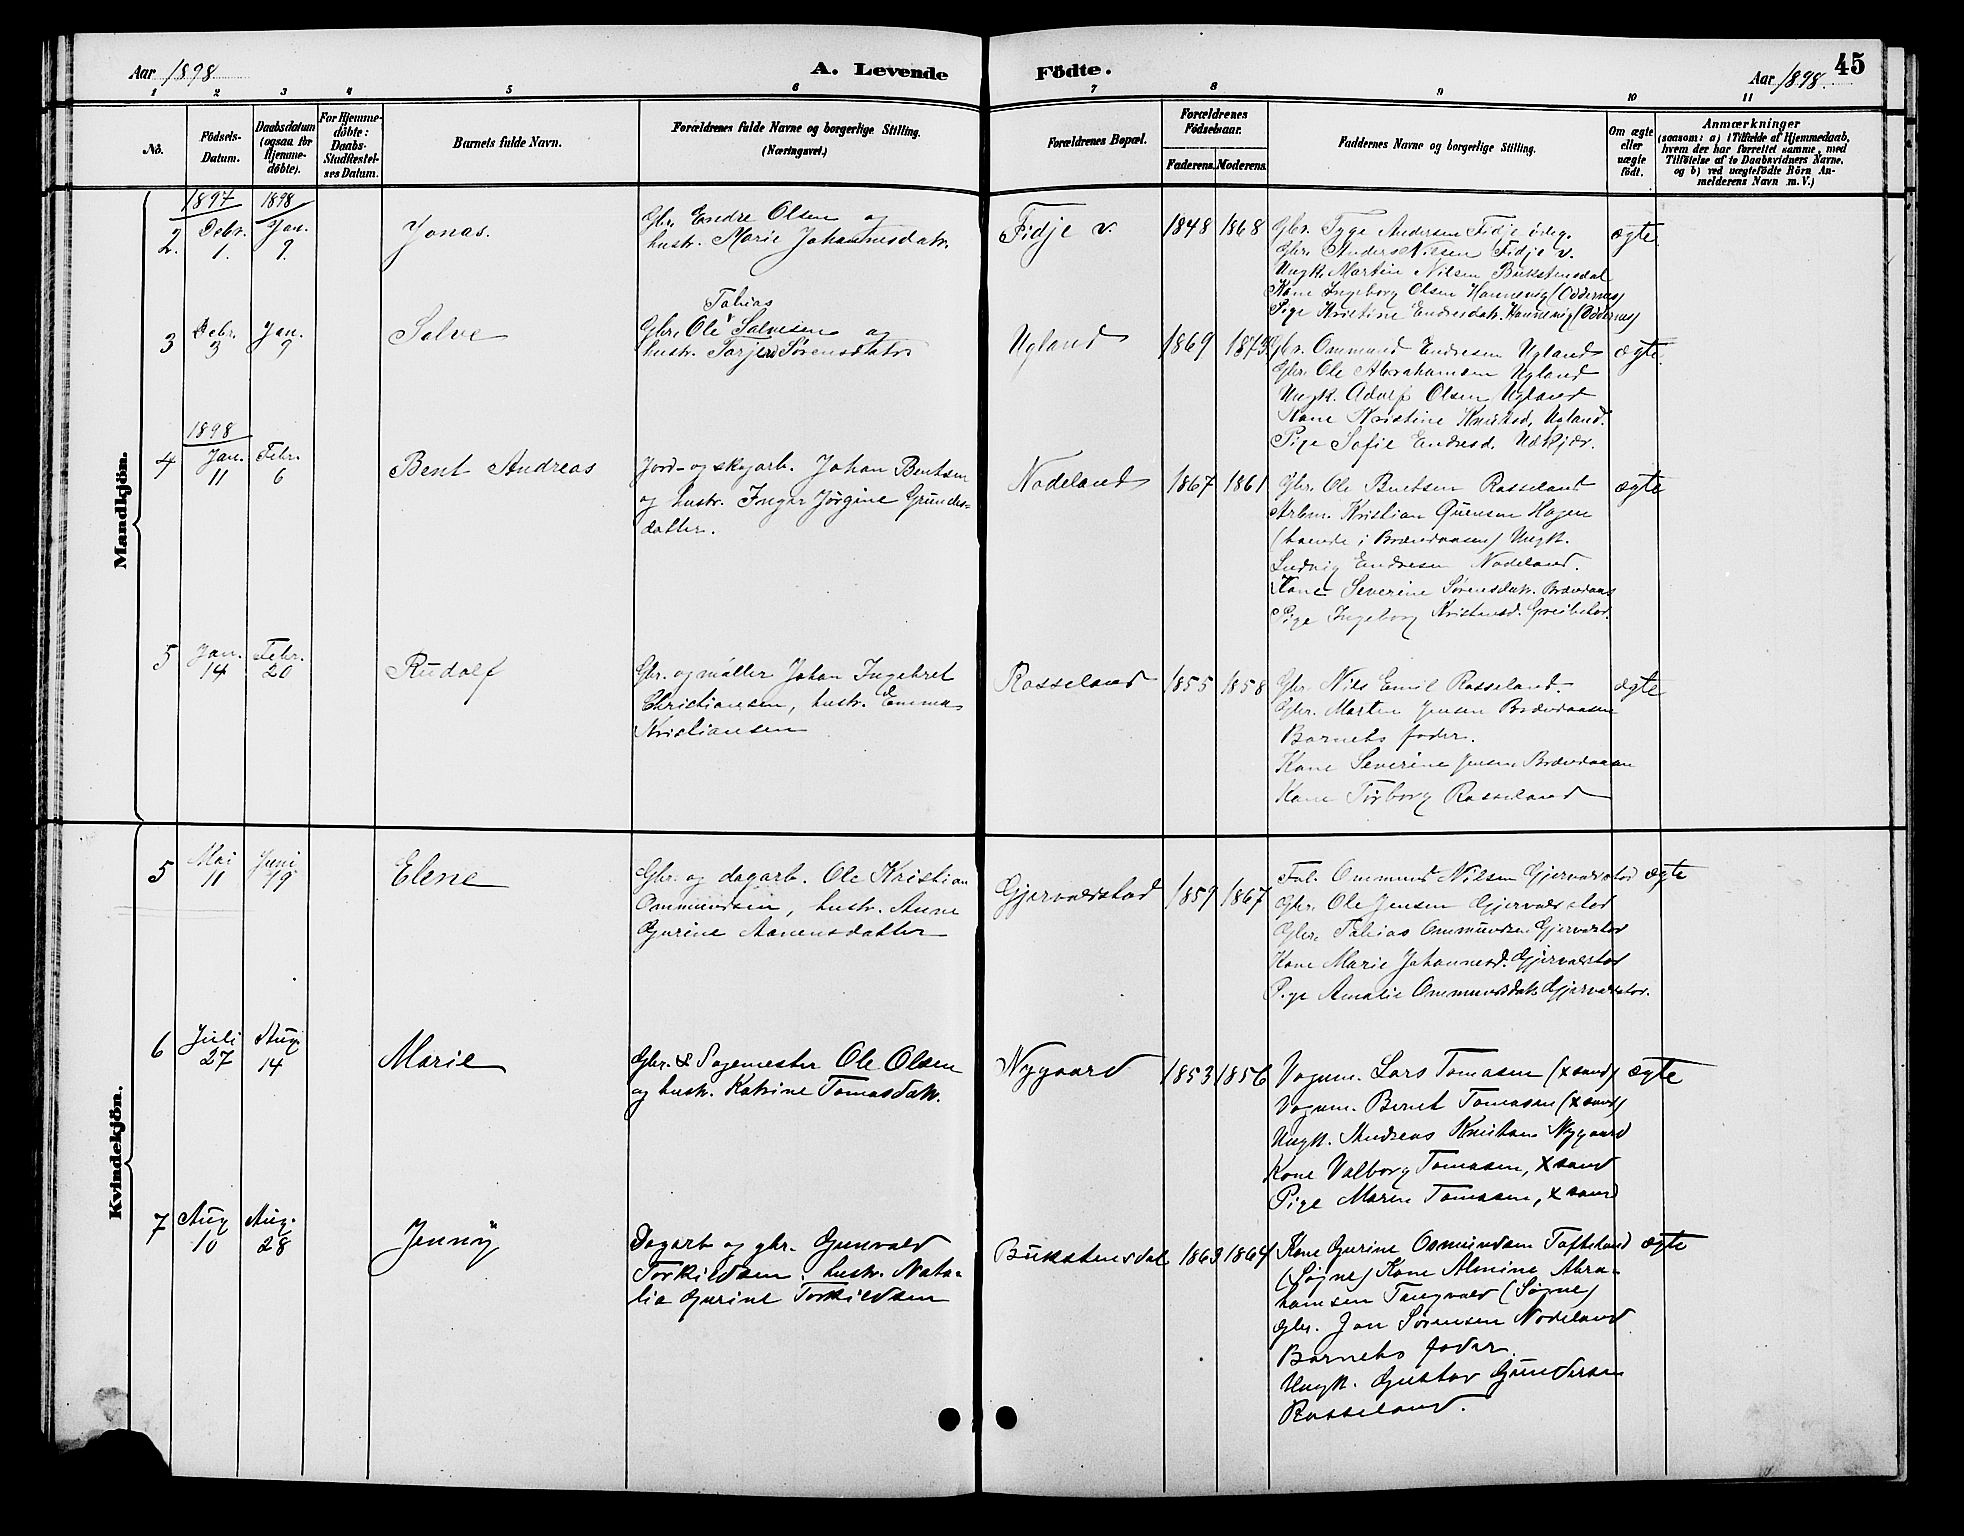 Aar 1898
A. Levende
Födte.
Aar 1898.
45
1 2 3 4 5 6 7 8 9 10 11
No.
Födsels-
Datum.
Daabsdatum
(ogsaa for
Hjemme-
døbte).
For Hjemme-
døbte:
Daabs-
Stadfæstel-
ses Datum.
Barnets fulde Navn.
Forældrenes fulde Navne og borgerlige Stilling.
(Næringsvei.)
Forældrenes Bopæl.
Forældrenes
Födselsaar.
Faderens. Moderens.
Faddernes Navne og borgerlige Stilling.
Om ægte
eller
uægte
født.
Anmærkninger
(saasom: a) i Tilfælde af Hjemmedaab,
hvem der har forrettet samme, med
Tilføielse af to Daabsvidners Navne,
og b) ved uægtefödte Börn An-
melderens Navn m. V.)
Mandkjön.
1897 1898
2. Debr. 1. Jan. 9.
Jonas.
Gbr. Endre Olsen og
hustr. Marie Johannesdatr.
Fidje v.
1848 1868
Gbr. Tyge Andersen Fidje
Gbr. Anders Nilsen Fidje v.
Ungk. Martin Nilsen Bukstensdal
Kone Ingeborg Olsen Hannevig (Oddernes)
Pige Kristine Endresdatr. Hannevig (Oddernes)
ægte.
3 Debr. 3 Jan. 9
Salve
Tobias
Gbr. Ole Salvesen og
hustr. Tarjer Sørensdatter
Ugland
1869 1873
Gbr. Ommund Endresen Ugland
Gbr. Ole Abrahamsen Ugland
Ungk. Adolf Olsen Ugland
Kone Kristine Knutsd. Ugland.
Pige Sofie Endresd. Udkjær.
ægte.
1898
4 Jan. 11 Febr. 6
Bent Andreas
Jord- og skogarb. Johan Bentsen
og hustr. Inger Jørgine Grundes-
datter.
Nodeland
1867 1861
Gbr. Ole Bentsen Rosseland
Arbm. Kristian Hagen
(boende i Brændaasen) Ungk.
Ludvig Endresen Nodeland.
Kone Severine Sørensdatr. Brændaas
Pige Ingeborg Kristensd. Greibesød.
ægte
5 Jan. 14 Febr. 20
Rudolf
Gbr. og møller Johan Ingebret
Christiansen, hustr. Emma
Kristiansen
Rosseland
1855 1858
Gbr. Nils Emil Rosseland.
Gbr. Martin Jensen Brændaasen
Barnets fader.
Kone Severine Jensen Brændaasen
Kone Torborg Rosseland
ægte
Kvindekjön.
5 Mai 11 Juni 19
Elene
Gbr. og dagarb. Ole Kristian
Ommundsen, hustr. Anne
Gurine Aanensdatter
Gjerværstad
1859 1867
Ommund Nilsen Gjerværstad
Gbr. Ole Jensen Gjerværstad
Gbr. Tobias Ommundsen Gjerværstad
Kone Marie Johannesd. Gjerværstad
Pige Amalie Ommundsdatr. Gjerværstad.
ægte
6 Juli 27 Aug. 14
Marie
Gbr. & Sagmester Ole Olsen
og hustr. Katrine Tomasdatr.
Nygaard
1853 1856
Vognm. Lars Tomasen (Xsand)
Vognm. Bernt Tomasen (Xsand)
Ungk. Andreas Knutsen Nygaard
Kone Valborg Tomasen, Xsand
Pige Maren Tomasen, Xsand
ægte
7 Aug 10 Aug. 28
Jenny
Dagarb og gbr. Gunvald
Torkildsen, hustr. Nata-
lia Gurine Torkildsen
Bukstensdal
1863 1864
Kone Gurine Osmundsen Tofteland
(Søgne) Kone Almine Abra-
hamsen Tangvald (Søgne)
Gbr. Jon Sørensen Nodeland
Barnets fader.
Ungk. Gustav Gundersen
Rosseland.
ægte